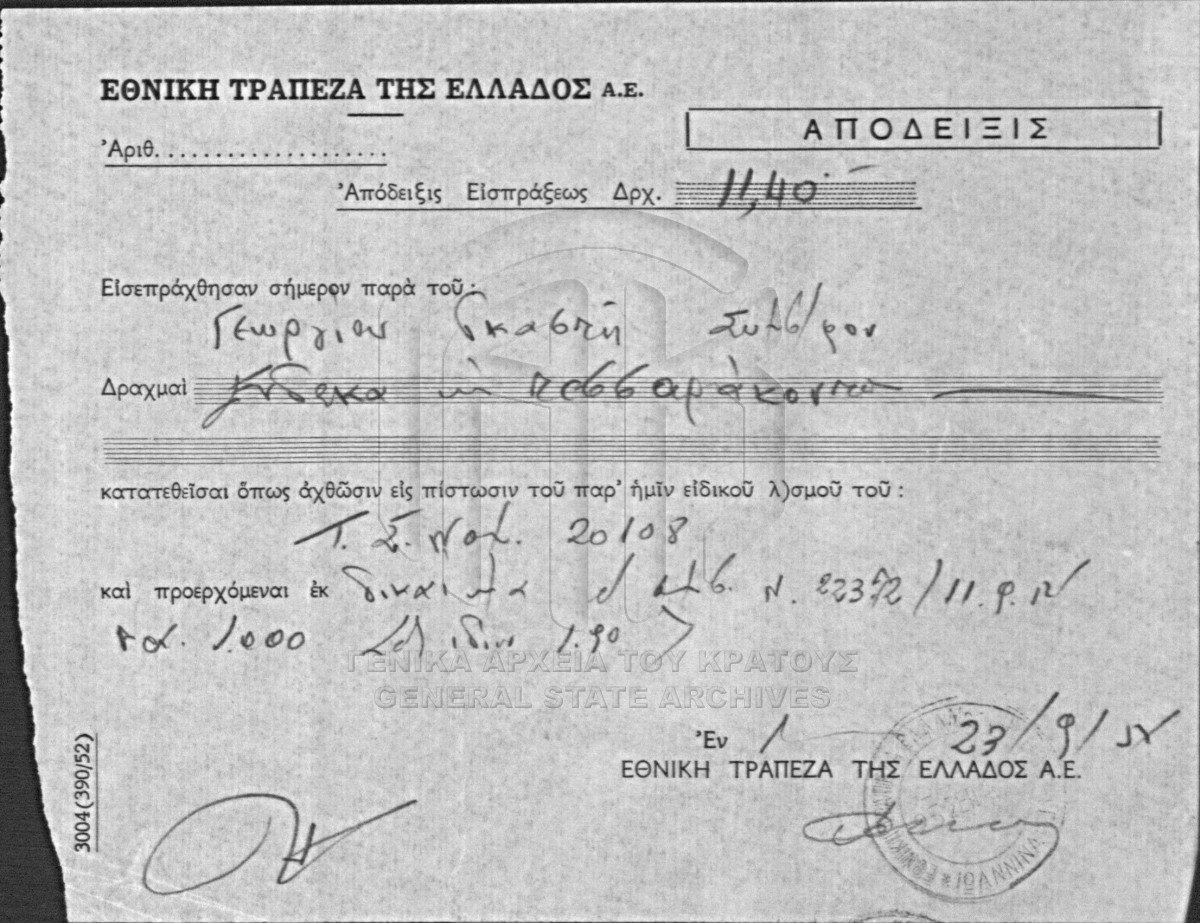 ΕΘΝΙΚΗ ΤΡΑΠΕΖΑ ΤΗΣ ΕΛΛΑΔΟΣ Α.Ε.
ΑΠΟΔΕΙΞΙΣ
Ἀριθ. ....................
Ἀπόδειξις Εἰσπράξεως Δρχ. 11,40
Εἰσεπράχθησαν σήμερον παρὰ τοῦ :
Γεωργίου
Δραχμαὶ Ἕνδεκα τεσσαράκοντα
κατατεθεῖσαι ὅπως ἀχθῶσιν εἰς πίστωσιν τοῦ παρ' ἡμῖν εἰδικοῦ λ)σμοῦ τοῦ :
Τ. Σ. Νομ. 20108
καὶ προερχόμεναι ἐκ δικαίωμα Ν. 22372/11.9.
1.000 1.90
ΓΕΝΙΚΑ ΑΡΧΕΙΑ ΤΟΥ ΚΡΑΤΟΥΣ
GENERAL STATE ARCHIVES
Ἐν 23/9/
ΕΘΝΙΚΗ ΤΡΑΠΕΖΑ ΤΗΣ ΕΛΛΑΔΟΣ Α.Ε.
3004(390/52)
ΙΩΑΝΝΙΝΑ